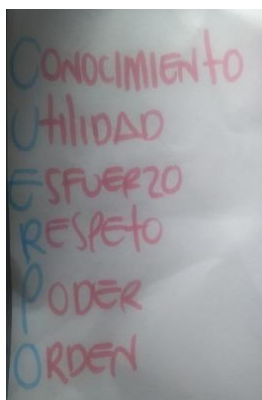 CONOCIMIENTO
UTILIDAD
ESFUERZO
RESPETO
PODER
ORDEN